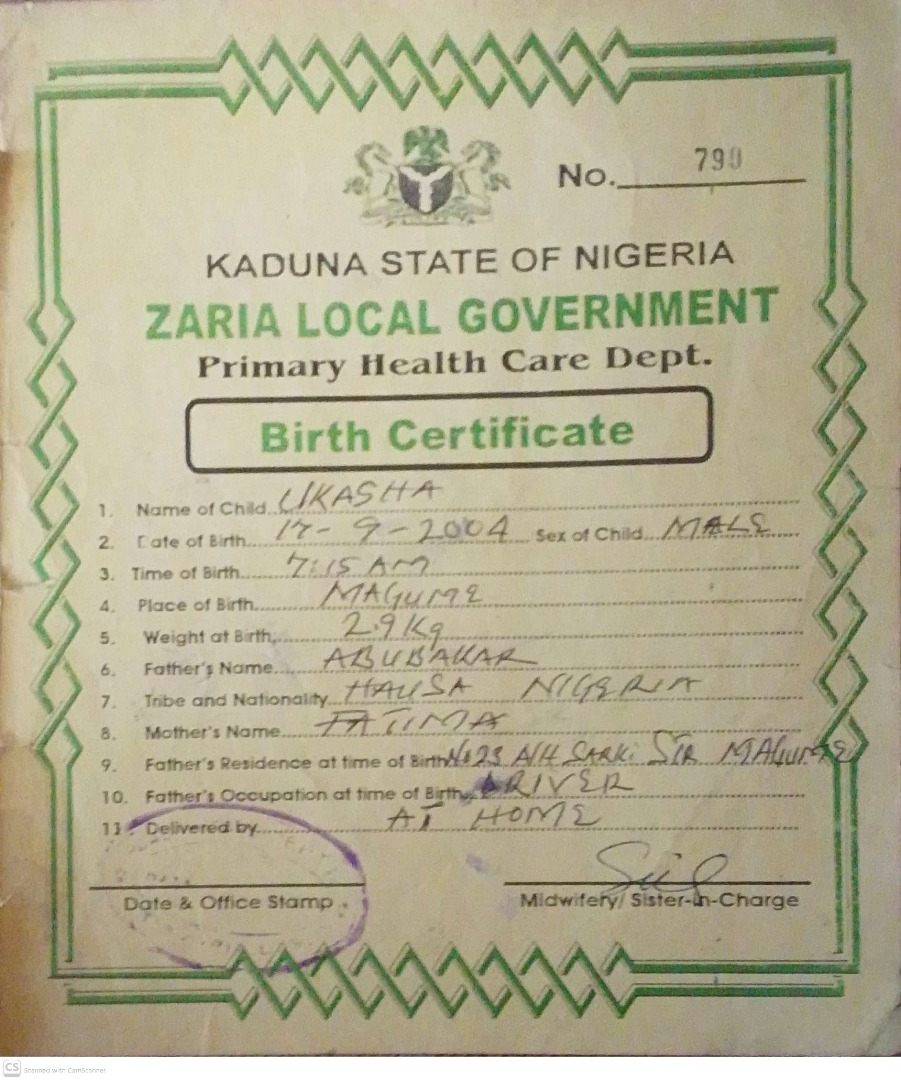 No. 790
KADUNA STATE OF NIGERIA
ZARIA LOCAL GOVERNMENT
Primary Health Care Dept.
Birth Certificate
1. Name of Child UKASHA
2. Date of Birth 17-9-2004 Sex of Child MALE
3. Time of Birth 7:15 AM
4. Place of Birth MAGUME
5. Weight at Birth 2.9 Kg
6. Father's Name ABUBAKAR
7. Tribe and Nationality HAUSA NIGERIA
8. Mother's Name FATIMA
9. Father's Residence at time of Birth No 23 A/H SARKI STR MAGUME
10. Father's Occupation at time of Birth DRIVER
11. Delivered by AT HOME
Date & Office Stamp
Midwifery/ Sister-in-Charge
CS Scanned with CamScanner